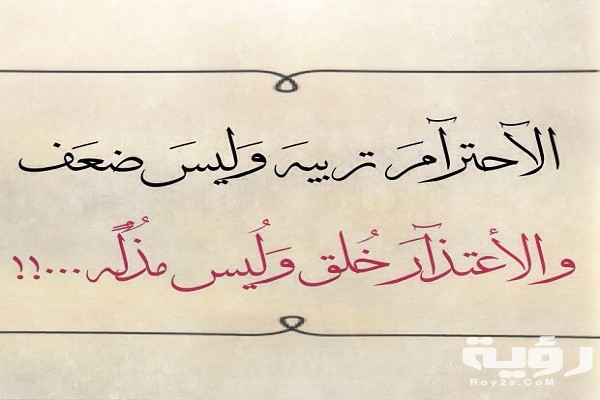 الآحترآمَ تربيہَ وَليسَ ضعَف
والأعتذآرَ خُلق وَلُيس مذُلًہ ...!!
رؤية
Roy2a.CoM